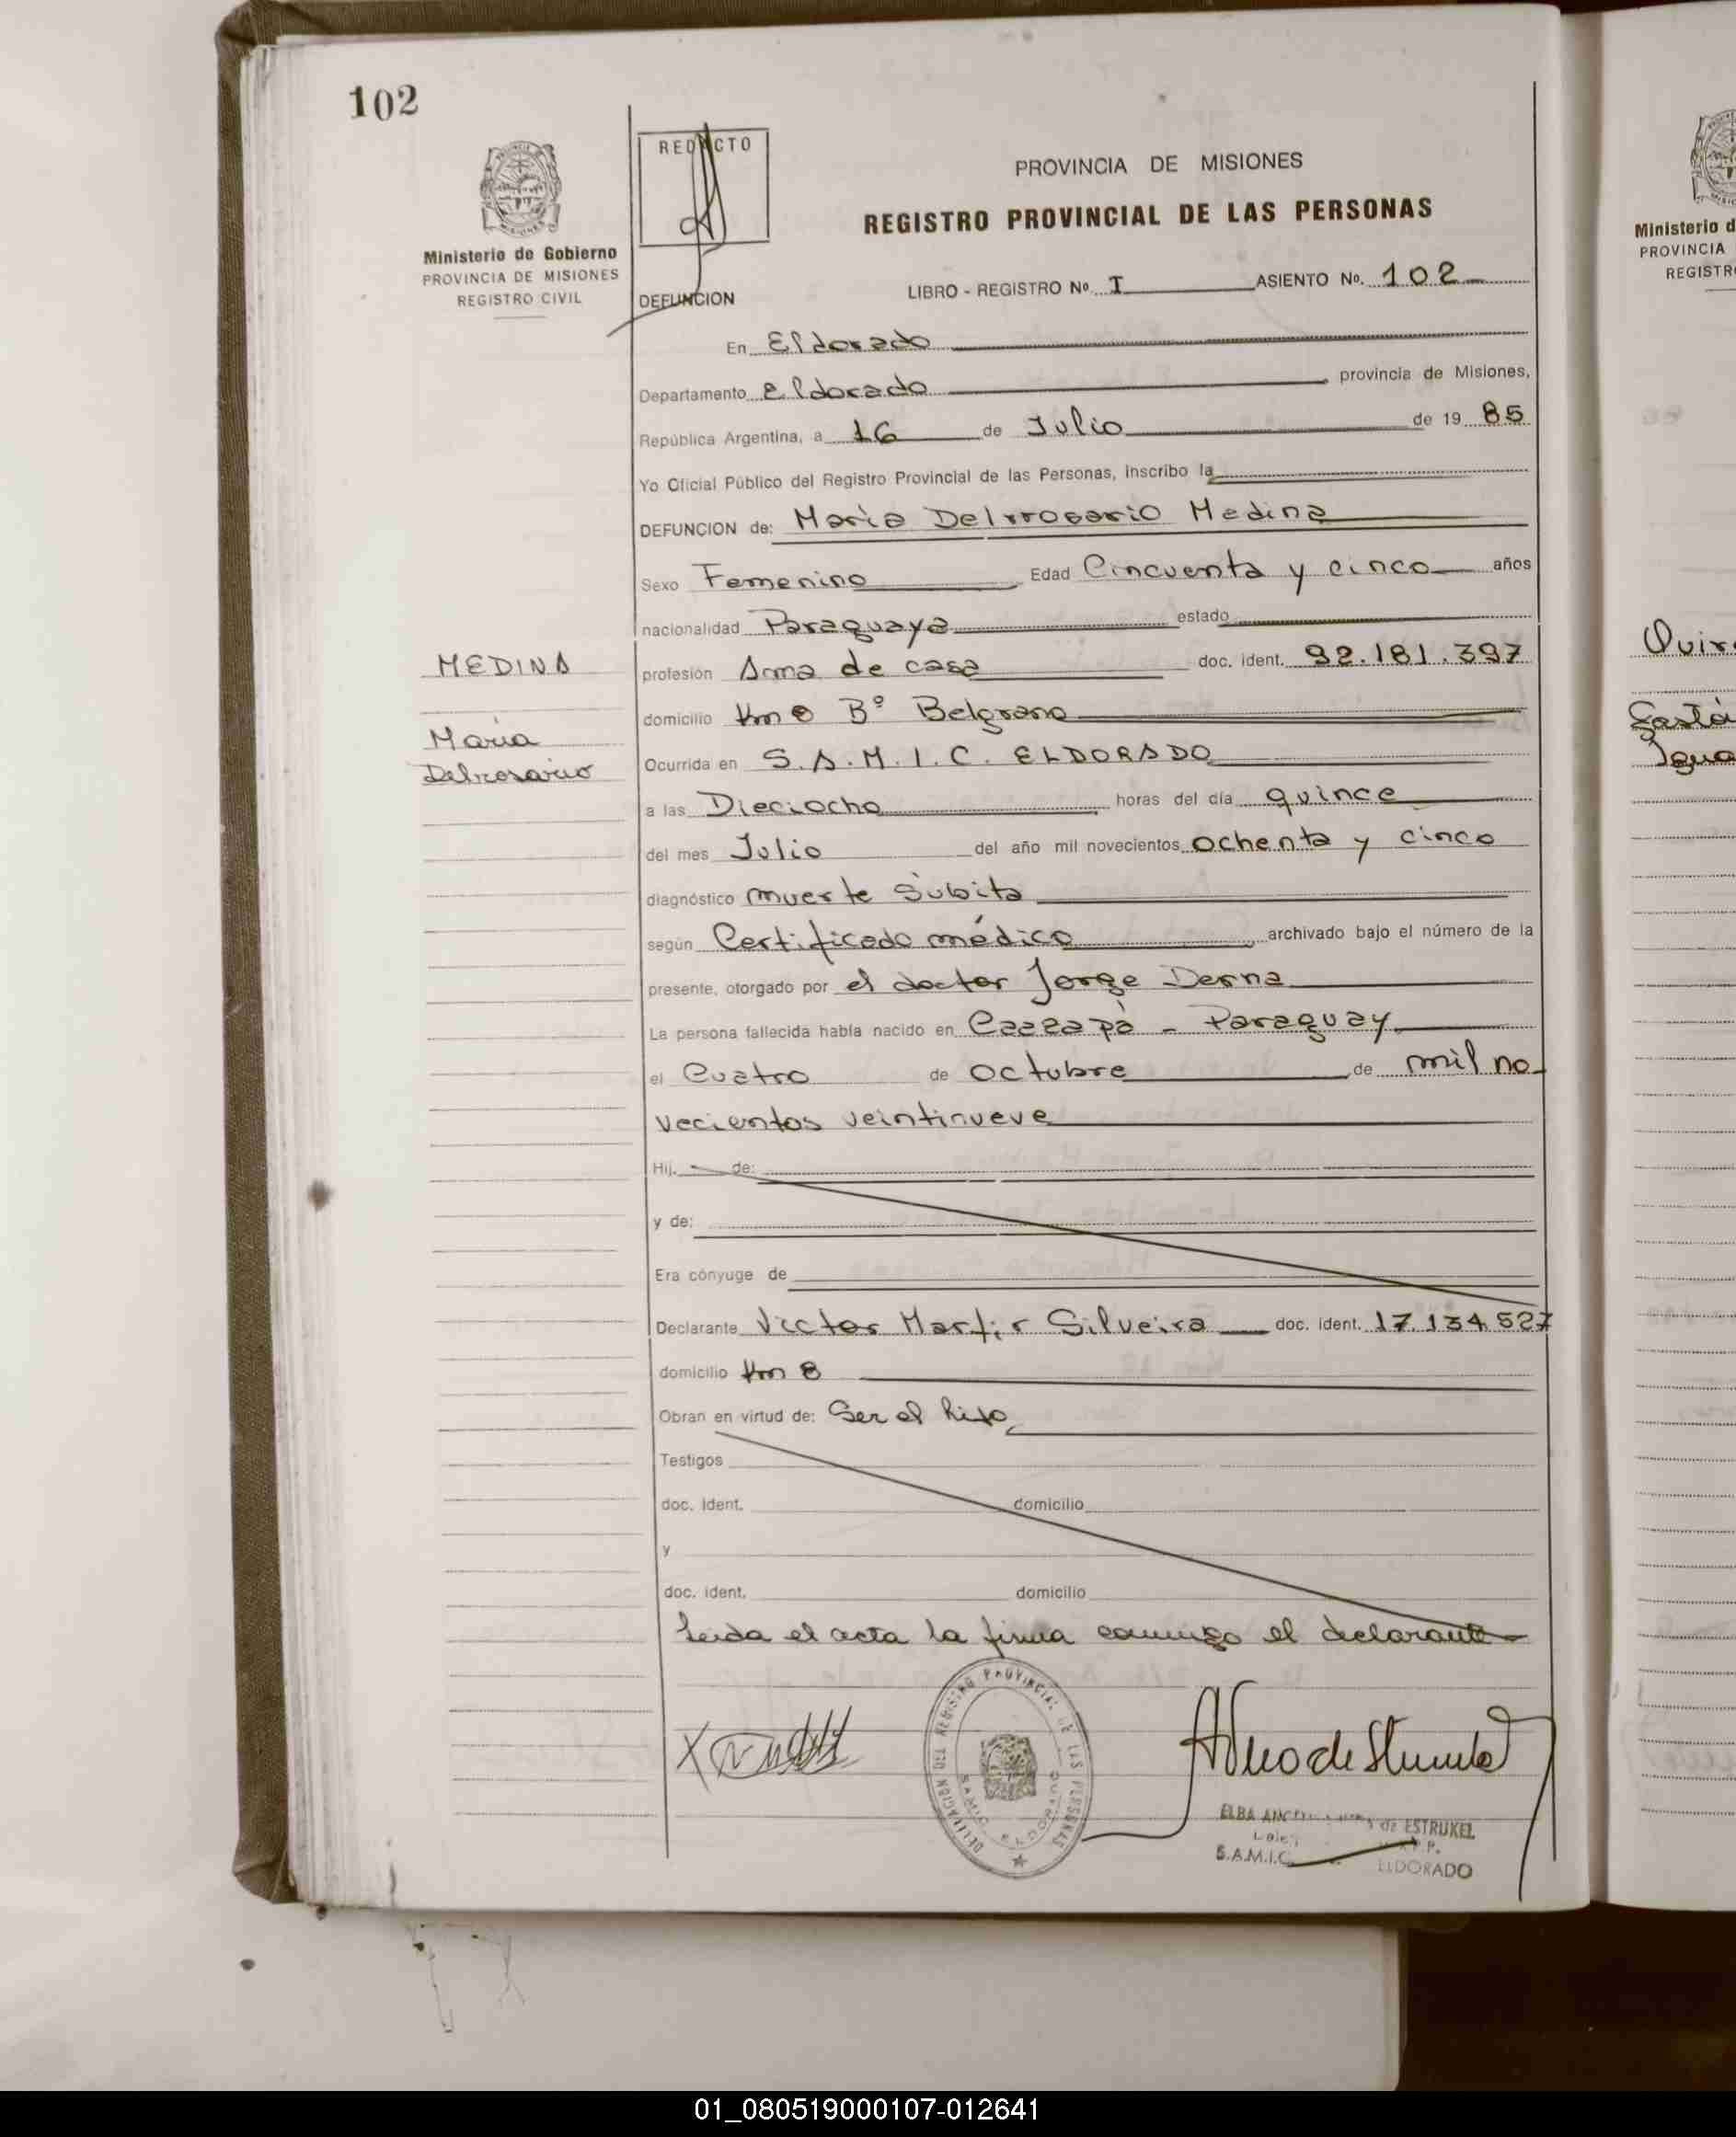 102
REDACTO
PROVINCIA DE MISIONES
REGISTRO PROVINCIAL DE LAS PERSONAS
Ministerio de Gobierno
PROVINCIA DE MISIONES
REGISTRO CIVIL
DEFUNCION
LIBRO - REGISTRO Nº I ASIENTO Nº. 102
En Eldorado
Departamento Eldorado provincia de Misiones,
República Argentina, a 16 de Julio de 19 85
Yo Oficial Público del Registro Provincial de las Personas, inscribo la
DEFUNCION de: Maria Delrrosario Medina
Sexo Femenino Edad Cincuenta y cinco años
nacionalidad Paraguaya estado
MEDINA
profesión Ama de casa doc. ident. 92.181.397
domicilio Km 8 Bº Belgrano
Maria
Delrosario
Ocurrida en S.A.M.I.C. ELDORADO
a las Dieciocho horas del día quince
del mes Julio del año mil novecientos ochenta y cinco
diagnóstico muerte Subita
según Certificado médico archivado bajo el número de la
presente, otorgado por el doctor Jorge Derna
La persona fallecida había nacido en Caazapà - Paraguay
el Cuatro de Octubre de mil no
vecientos veintinueve
Hij de:
y de:
Era cónyuge de
Declarante Victor Martir Silveira doc. ident. 17.134.527
domicilio Km 8
Obran en virtud de: Ser el hijo
Testigos
doc. ident. domicilio
y
doc. ident. domicilio
Leida el acta la firma conmigo el declarante
DELEGACION DEL REGISTRO PROVINCIAL DE LAS PERSONAS
ELBA de ESTRUKEL
S.A.M.I.C. ELDORADO
Ministerio d
PROVINCIA
REGISTR
01_080519000107-012641